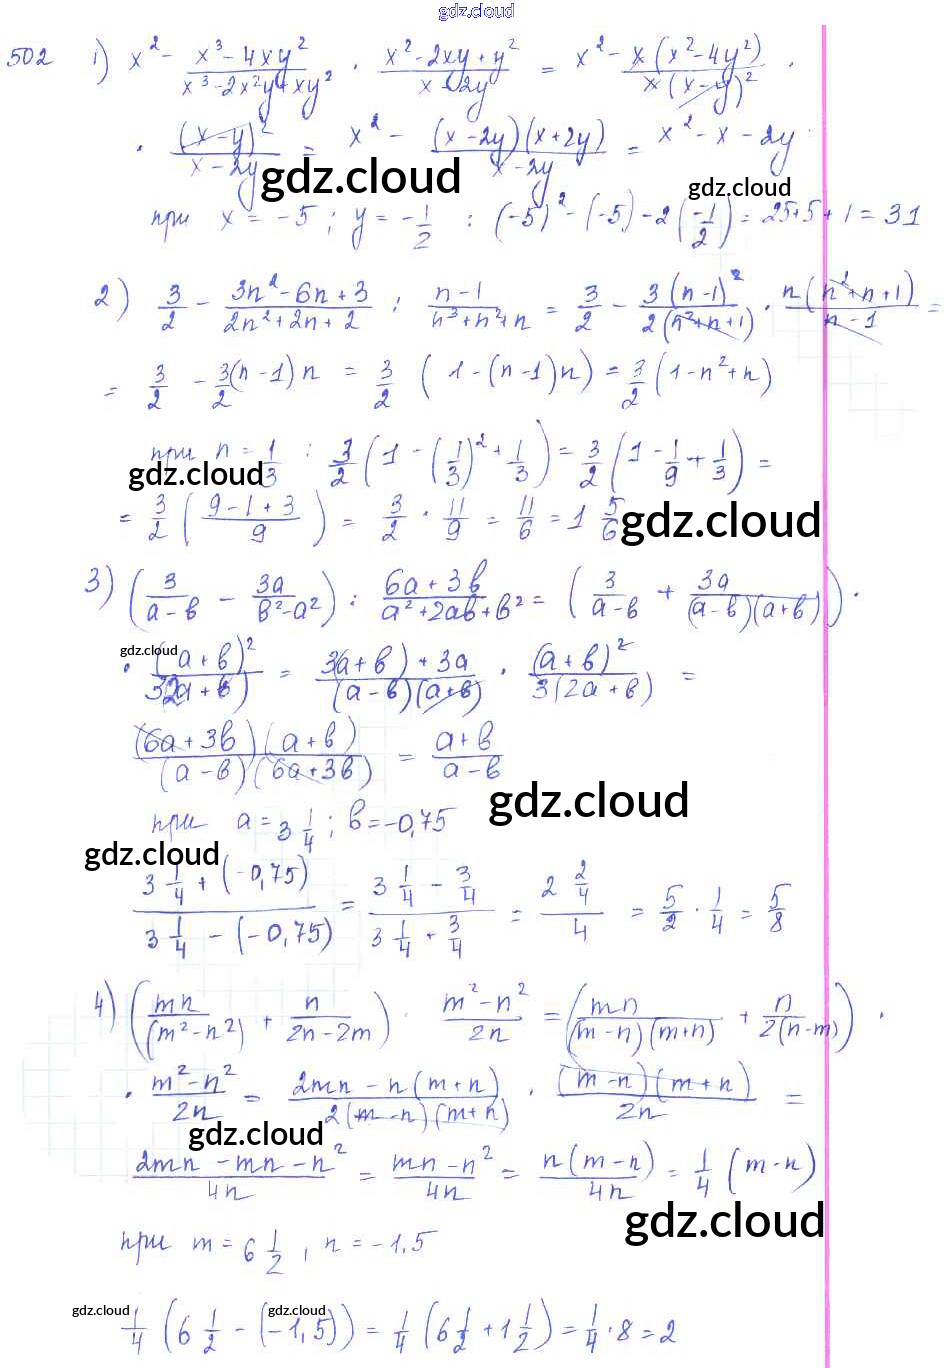 gdz.cloud
502 1) x² - (x³ - 4xy²)/(x³ - 2x²y + xy²) · (x² - 2xy + y²)/(x - 2y) = x² - x(x² - 4y²)/x(x - y)² ·
· (x - y)²/(x - 2y) = x² - (x - 2y)(x + 2y)/(x - 2y) = x² - x - 2y
gdz.cloud gdz.cloud
при x = -5; y = -1/2 : (-5)² - (-5) - 2(-1/2) = 25+5+1 = 31
2) 3/2 - (3n² - 6n + 3)/(2n² + 2n + 2) : (n - 1)/(n³ + n² + n) = 3/2 - 3(n - 1)²/2(n² + n + 1) · n(n² + n + 1)/(n - 1) =
= 3/2 - 3/2(n - 1)n = 3/2 (1 - (n - 1)n) = 3/2 (1 - n² + n)
при n = 1/3 : 3/2 (1 - (1/3)² + 1/3) = 3/2 (1 - 1/9 + 1/3) =
gdz.cloud
= 3/2 ((9 - 1 + 3)/9) = 3/2 · 11/9 = 11/6 = 1 5/6
gdz.cloud
3) (3/(a - b) - 3a/(b² - a²)) : (6a + 3b)/(a² + 2ab + b²) = (3/(a - b) + 3a/(a - b)(a + b)) ·
gdz.cloud
· (a + b)²/3(2a + b) = (3(a + b) + 3a)/(a - b)(a + b) · (a + b)²/3(2a + b) =
(6a + 3b)(a + b)/(a - b)(6a + 3b) = (a + b)/(a - b)
gdz.cloud
при a = 3 1/4; b = -0,75
gdz.cloud
(3 1/4 + (-0,75))/(3 1/4 - (-0,75)) = (3 1/4 - 3/4)/(3 1/4 + 3/4) = (2 2/4)/4 = 5/2 · 1/4 = 5/8
4) (mn/(m² - n²) + n/(2n - 2m)) · (m² - n²)/2n = (mn/(m - n)(m + n) + n/2(n - m)) ·
· (m² - n²)/2n = (2mn - n(m + n))/2(m - n)(m + n) · (m - n)(m + n)/2n =
gdz.cloud
(2mn - mn - n²)/4n = (mn - n²)/4n = n(m - n)/4n = 1/4 (m - n)
gdz.cloud
при m = 6 1/2, n = -1,5
gdz.cloud gdz.cloud
1/4 (6 1/2 - (-1,5)) = 1/4 (6 1/2 + 1 1/2) = 1/4 · 8 = 2